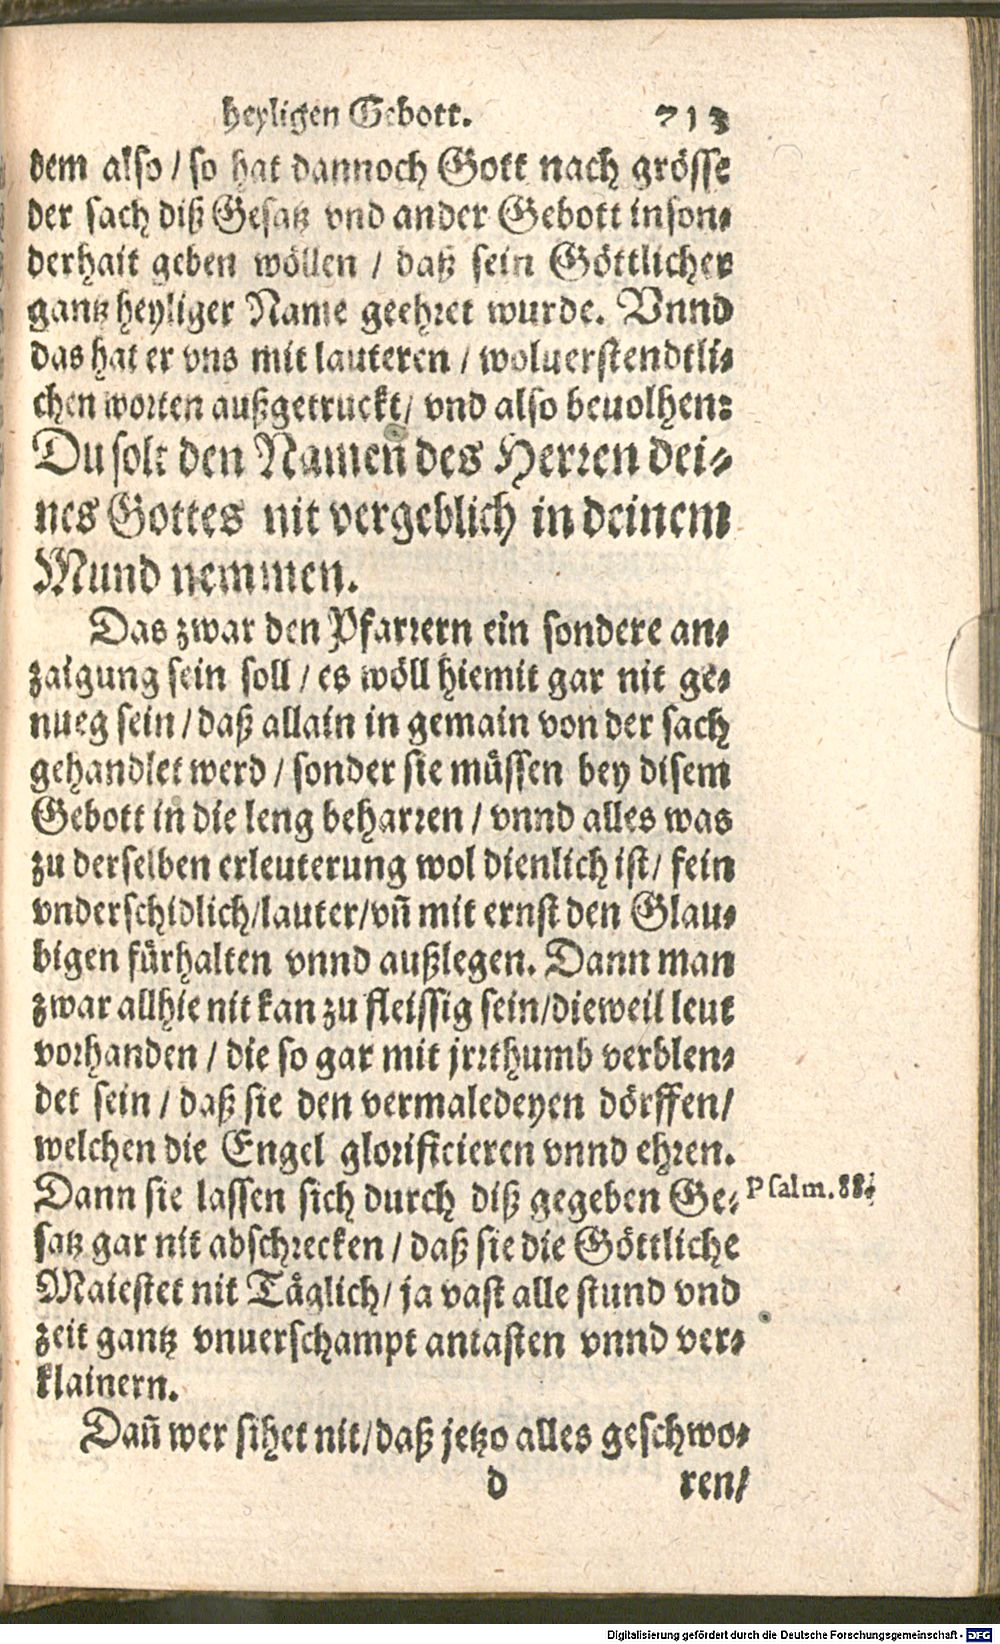 heyligen Gebott. 713
dem also / so hat dannoch Gott nach grösse
der sach diß Gesatz vnd ander Gebott inson⸗
derhait geben wöllen / daß sein Göttlicher
gantz heyliger Name geehret wurde. Vnnd
das hat er vns mit lauteren / woluerstendtli⸗
chen worten außgetruckt / vnd also beuolhen:
Du solt den Namen des Herren dei⸗
nes Gottes nit vergeblich in deinem
Mund nemmen.
Das zwar den Pfarrern ein sondere an⸗
zaigung sein soll / es wöll hiemit gar nit ge⸗
nueg sein / daß allain in gemain von der sach
gehandlet werd / sonder sie müssen bey disem
Gebott in die leng beharren / vnnd alles was
zu derselben erleuterung wol dienlich ist / fein
vnderschidlich / lauter / vñ mit ernst den Glau⸗
bigen fürhalten vnnd außlegen. Dann man
zwar allhie nit kan zu fleissig sein / dieweil leut
vorhanden / die so gar mit jrrthumb verblen⸗
det sein / daß sie den vermaledeyen dörffen /
welchen die Engel glorificieren vnnd ehren.
Dann sie lassen sich durch diß gegeben Ge⸗ Psalm. 88.
satz gar nit abschrecken / daß sie die Göttliche
Maiestet nit Täglich / ja vast alle stund vnd
zeit gantz vnuerschampt antasten vnnd ver⸗
klainern.
Dañ wer sihet nit / daß jetzo alles geschwo⸗
d ren /
Digitalisierung gefördert durch die Deutsche Forschungsgemeinschaft - DFG